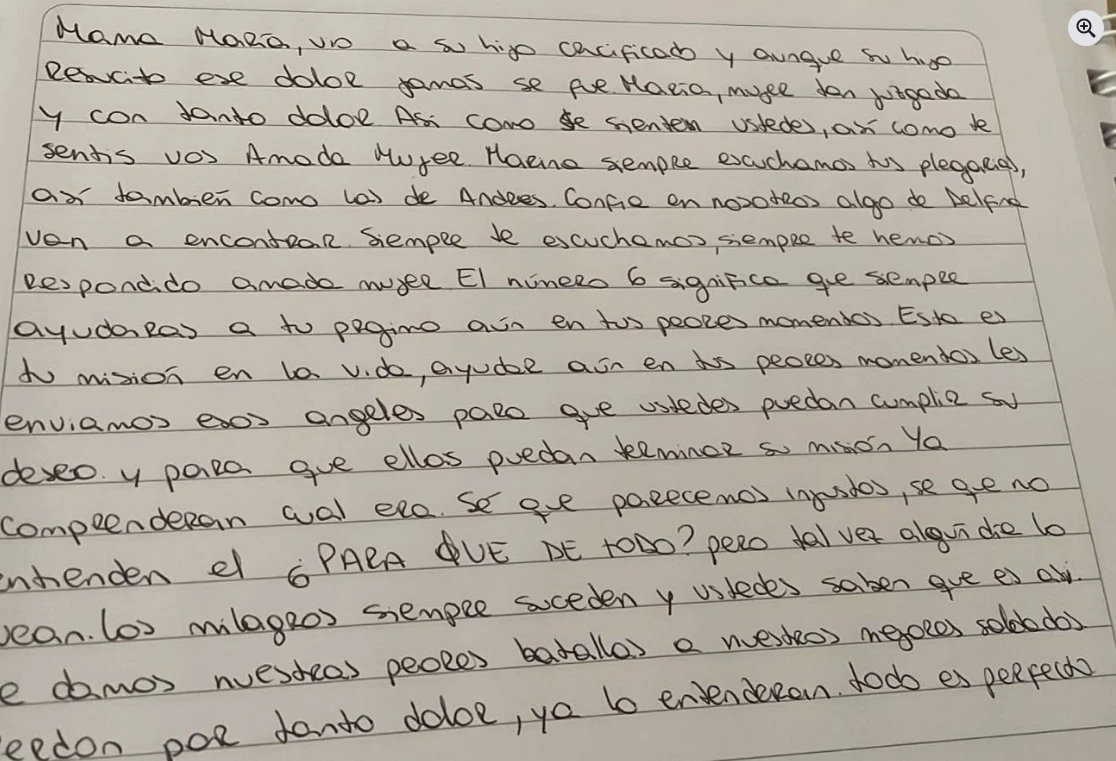 Mama María, vio a su hijo crucificado y aunque su hijo
Resucito ese dolor jamas se fue Maria, mujer tan juzgada
y con tanto dolor Asi como se sienten ustedes, así como te
sentis vos Amada Mujer. Marina siempre escuchamos tus plegarias,
así tambien como las de Andres. Confia en nosotros algo de Delfina
van a encontrar. Siempre te escuchamos, siempre te hemos
Respondido amada mujer El número 6 significa que siempre
ayudaras a tu progimo aún en tus peores momentos Esta es
tu misión en la vida, ayudar aún en tus peores momentos les
enviamos esos angeles para que ustedes puedan cumplir su
deseo. y para que ellas puedan terminar su misión Ya
comprenderan cual era. Sé que parecemos injustos, se que no
entienden el ¿PARA QUE DE TODO? pero tal vez algún dia lo
vean. los milagros siempre suceden y ustedes saben que es asi.
le damos nuestras peores batallas a nuestros mejores soldados
perdon por tanto dolor, ya lo entenderan. todo es perfecto